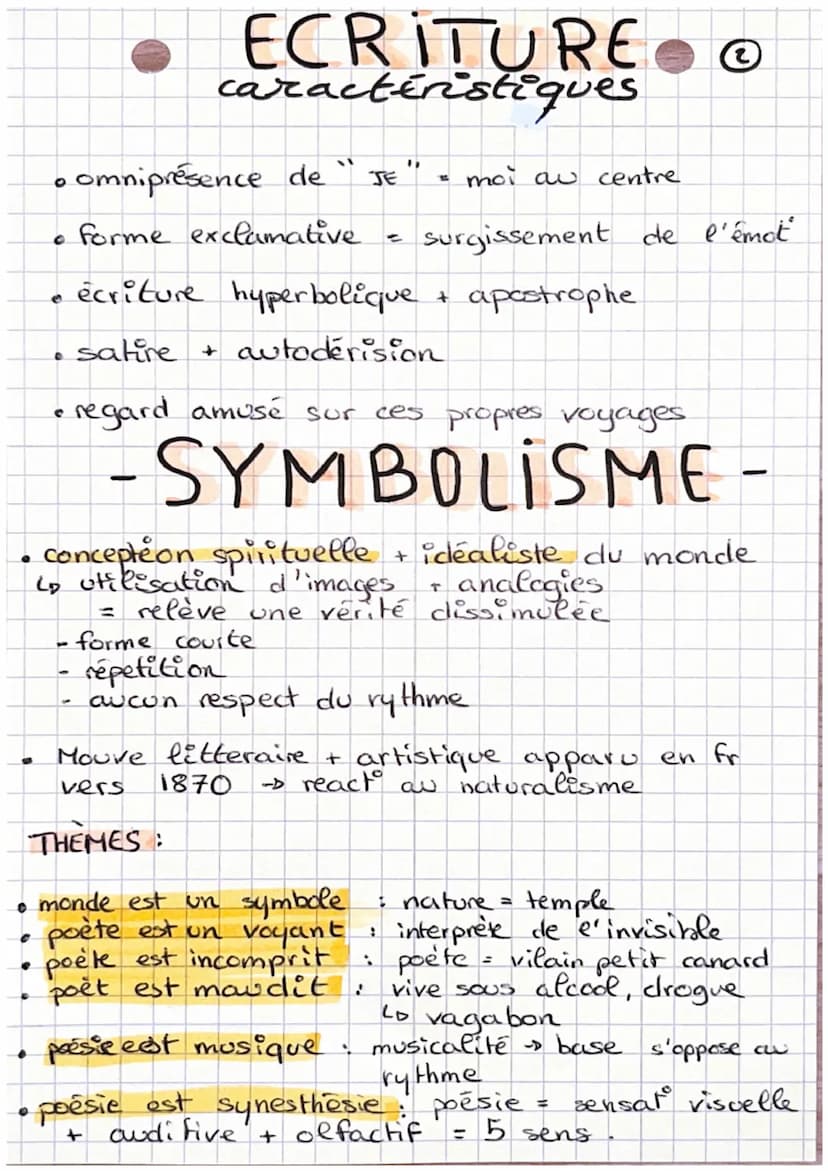 ECRITURE ②
caractéristiques
• omniprésence de "JE" = moi au centre
• forme exclamative = surgissement de l'émot°
• écriture hyperbolique + apostrophe
• satire + autodérision
• regard amusé sur ces propres voyages
- SYMBOLISME -
• conceptéon spirituelle + idéaliste du monde
↳ utilisation d'images + analogies
= relève une vérité dissimulée
- forme courte
- répetition
- aucun respect du rythme
• Mouve litteraire + artistique apparu en fr
vers 1870 → react° au naturalisme
THÈMES :
• monde est un symbole : nature = temple
• poète est un voyant : interprète de l'invisible
• poète est incomprit : poéte = vilain petit canard
• poèt est maudit : vive sous alcool, drogue
↳ vagabon
• poésie est musique : musicalité → base s'oppose au
rythme
• poésie est synesthésie : poésie = sensat° visuelle
+ auditive + olfactif = 5 sens.